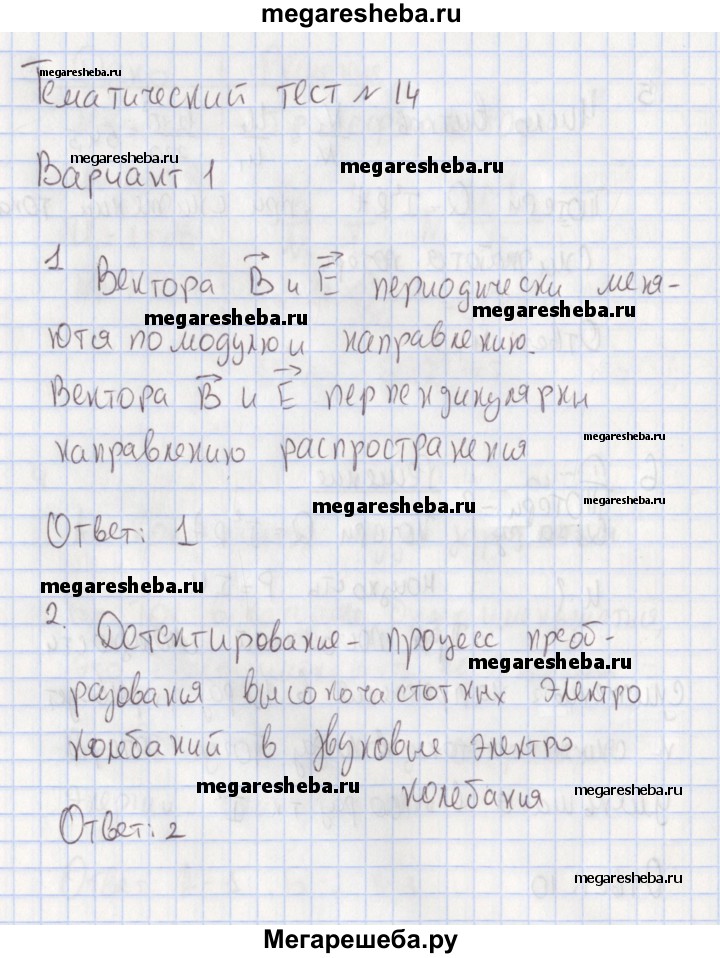 megaresheba.ru
megaresheba.ru
Тематический тест № 14
megaresheba.ru
megaresheba.ru
Вариант 1
1 Вектора B и E периодически меня-
megaresheba.ru
megaresheba.ru
ются по модулю и направлению.
Вектора B и E перпендикулярны
megaresheba.ru
направлению распространения
megaresheba.ru
megaresheba.ru
Ответ: 1
megaresheba.ru
2. Детектирование - процесс преоб-
megaresheba.ru
разования высокочастотных электро
колебаний в звуковые электро
megaresheba.ru
megaresheba.ru
колебания
Ответ: 2
megaresheba.ru
Мегарешеба.ру